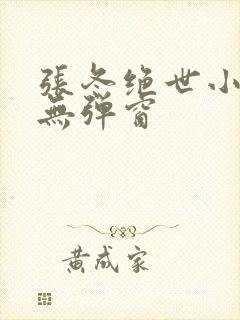 張冬绝世小
無弹窗
黄成家